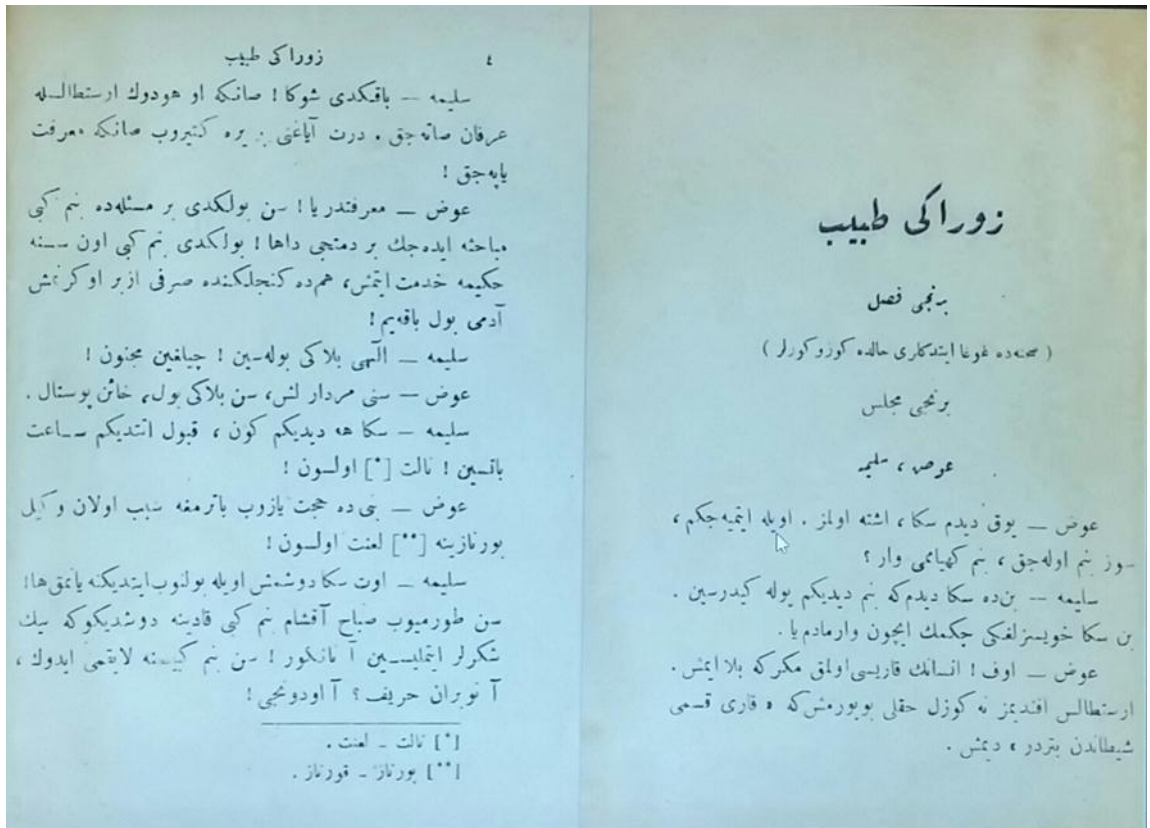 زوراكی طبیب
برنجی فصل
( صحنه‌ده غوغا ایتدكلری حالده كوزوكورلر )
برنجی مجلس
عوض ، سلیمه
عوض — یوق دیدم سكا ، اشته اولمز . اویله ایتمیه‌جكم ،
سوز بنم اوله‌جق ، بنم كهیامی وار ؟
سلیمه — بن‌ده سكا دیدم‌كه بنم دیدیكم یوله كیدرسین .
بن سكا خویسزلغكی چكمك ایچون وارمادم‌یا .
عوض — اوف ! انسانك قاریسی اولمق مكركه بلا ایمش .
ارستطالس افندیمز نه كوزل حقلی بویورمش‌كه « قاری قسمی
شیطاندن بتردر » دیمش .
٤ زوراكی طبیب
سلیمه — باقكدی شوكا ! صانكه او هودوك ارستطالسله
عرفان صاته‌جق . درت آیاغنی بر یره كتیروب صانكه معرفت
یاپه‌جق !
عوض — معرفتدر یا ! سن بولكدی بر مسئله‌ده بنم كبی
مباحثه ایده‌جك بر دمتجی داها ! بولكدی بنم كبی اون سنه
حكیمه خدمت ایتمش ، هم‌ده كنجلكنده صرفی ازبر اوكرنمش
آدمی بول باقه‌یم !
سلیمه — الٓهی بلاكی بوله‌سین ! چیلغین مجنون !
عوض — سنی مردار لش ، سن بلاكی بول ، خائن پوستال .
سلیمه — سكا هه دیدیكم كون ، قبول اتتدیكم ساعت
باتسین ! نالت [*] اولسون !
عوض — بنی‌ده حجت یازوب باترمغه سبب اولان وكیل
بورنازینه [**] لعنت اولسون !
سلیمه — اوت سكا دوشمش اویله بولنوب ایتدیكنه یانمق ها !
سن طورمیوب صباح آقشام بنم كبی قادینه دوشدیكوكه بیك
شكرلر ایتملیسین آ نانكور ! سن بنم كیمسنه لایقمی ایدوك ،
آ نوبران حریف ؟ آ اودونجی !
[*] نالت — لعنت .
[**] بورناز — قورناز .